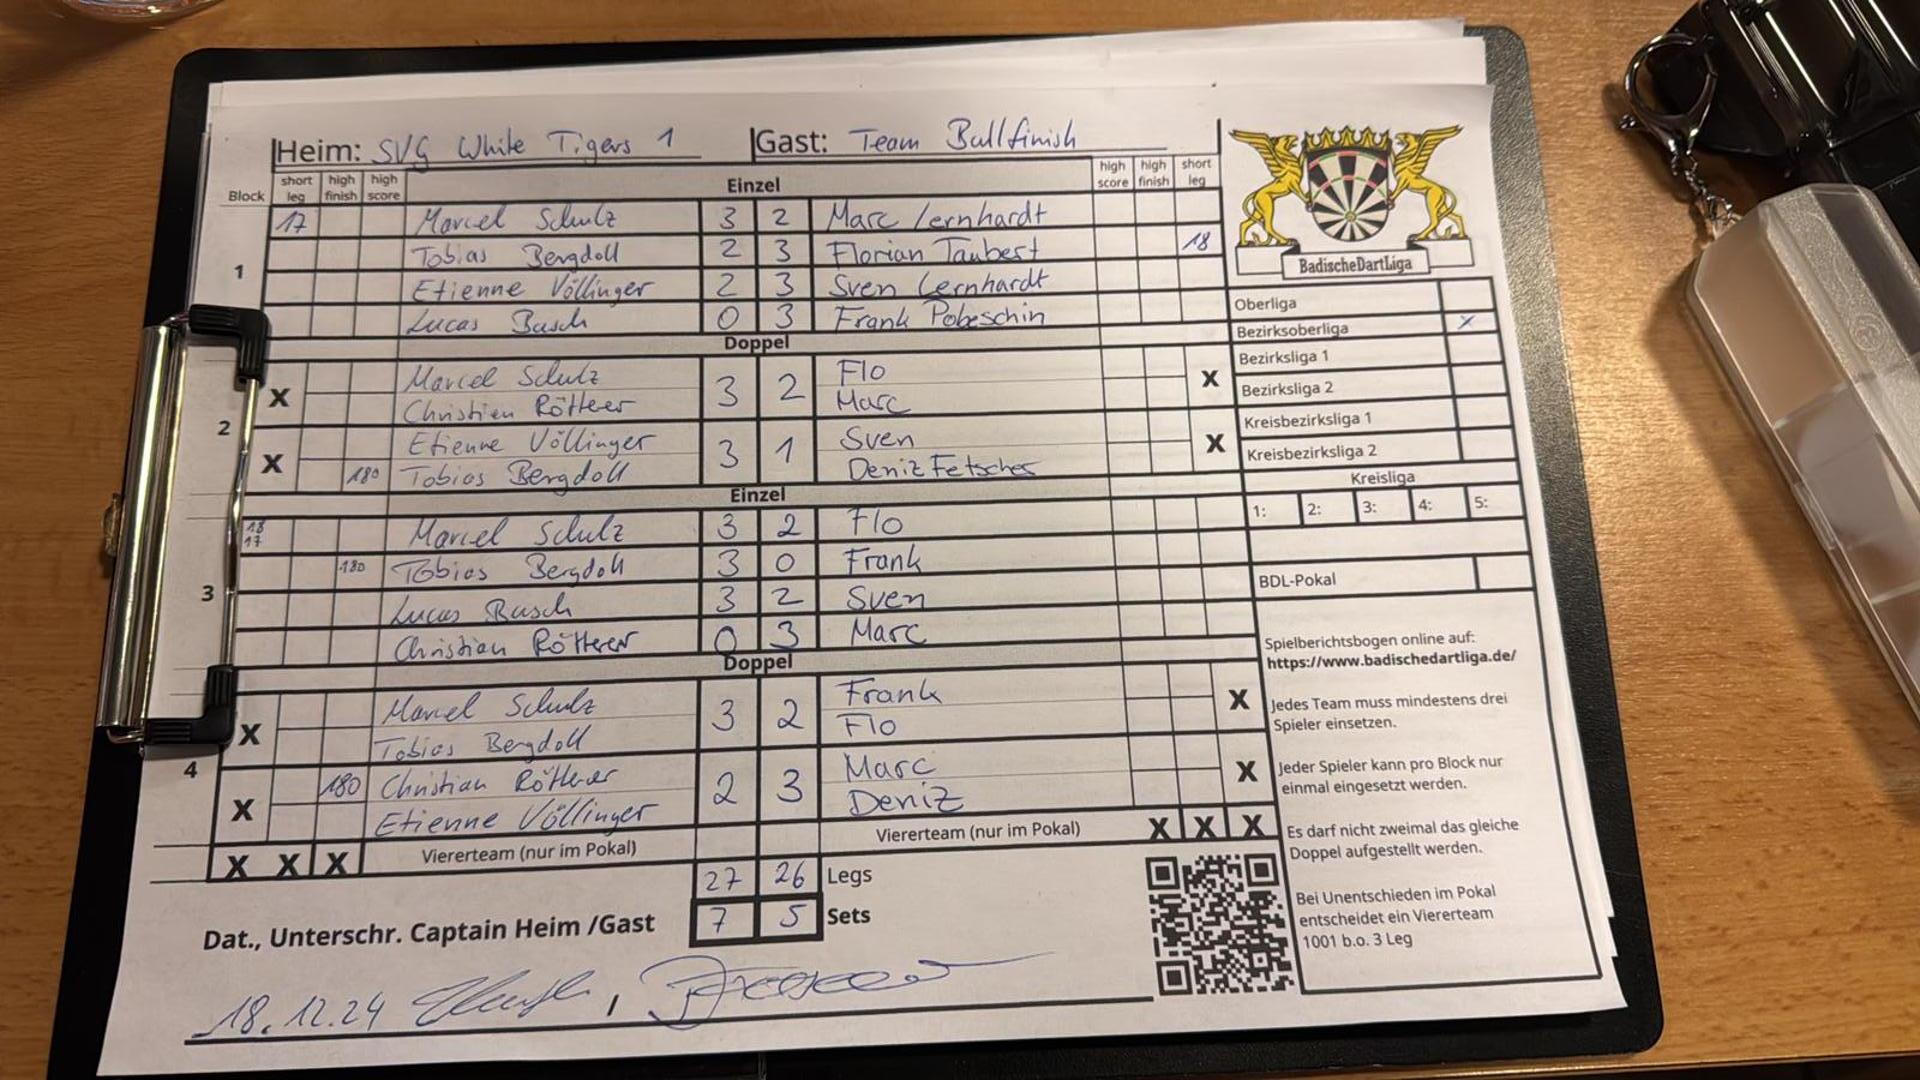 Heim: SVG White Tigers 1 Gast: Team Bullfinish
Block short leg high finish high score Einzel high score high finish short leg
1
17 Marcel Schulz 3 2 Marc Lernhardt
Tobias Bergdoll 2 3 Florian Taubert 18
Etienne Völlinger 2 3 Sven Lernhardt
Lucas Busch 0 3 Frank Pobeschin
Doppel
2
X Marcel Schulz 3 2 Flo X
Christian Rötterer Marc
X Etienne Völlinger 3 1 Sven X
180 Tobias Bergdoll Deniz Fetscher
Einzel
3
18 17 Marcel Schulz 3 2 Flo
180 Tobias Bergdoll 3 0 Frank
Lucas Busch 3 2 Sven
Christian Rötterer 0 3 Marc
Doppel
4
X Marcel Schulz 3 2 Frank X
Tobias Bergdoll Flo
X 180 Christian Rötterer 2 3 Marc X
Etienne Völlinger Deniz
X X X Viererteam (nur im Pokal) Viererteam (nur im Pokal) X X X
27 26 Legs
7 5 Sets
Dat., Unterschr. Captain Heim /Gast
18.12.24 ,
BadischeDartLiga
Oberliga
Bezirksoberliga x
Bezirksliga 1
Bezirksliga 2
Kreisbezirksliga 1
Kreisbezirksliga 2
Kreisliga
1: 2: 3: 4: 5:
BDL-Pokal
Spielberichtsbogen online auf:
https://www.badischedartliga.de/
Jedes Team muss mindestens drei
Spieler einsetzen.
Jeder Spieler kann pro Block nur
einmal eingesetzt werden.
Es darf nicht zweimal das gleiche
Doppel aufgestellt werden.
Bei Unentschieden im Pokal
entscheidet ein Viererteam
1001 b.o. 3 Leg